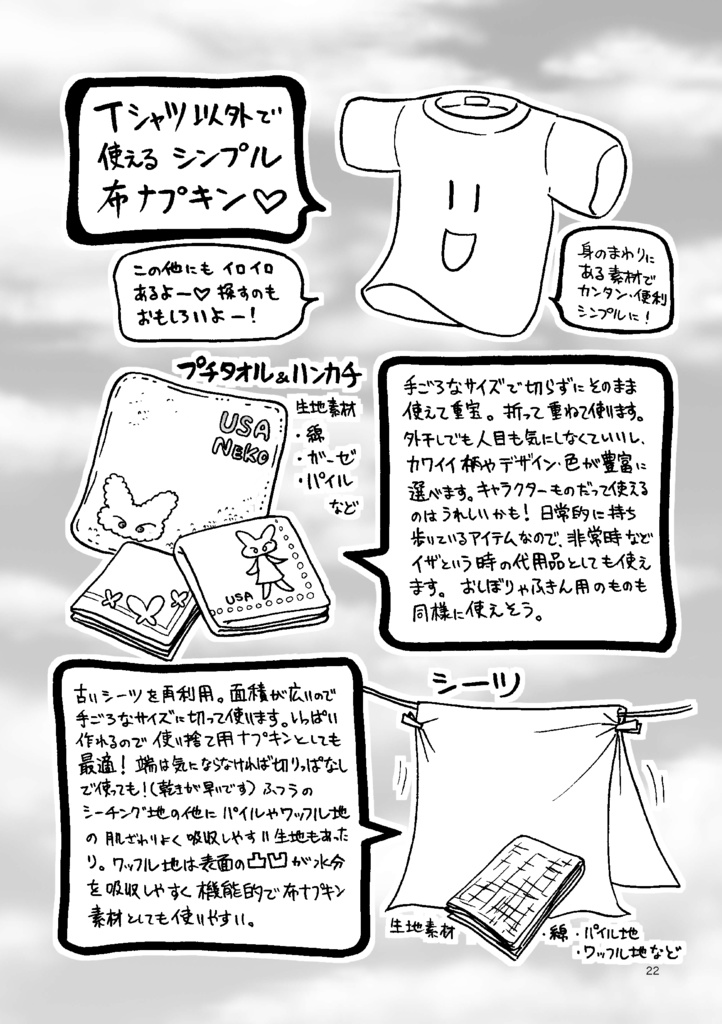 Tシャツ以外で
使える シンプル
布ナプキン♡
この他にも イロイロ
あるよー♡ 探すのも
おもしろいよー！
身のまわりに
ある素材で
カンタン・便利
シンプルに！
プチタオル＆ハンカチ
生地素材
・綿
・ガーゼ
・パイル
など
USA
NEKO
USA
手ごろなサイズで切らずにそのまま
使えて重宝。折って重ねて使います。
外干しでも人目も気にしなくていいし、
カワイイ柄やデザイン・色が豊富に
選べます。キャラクターものだって使える
のはうれしいかも！日常的に持ち
歩いているアイテムなので、非常時など
イザという時の代用品としても使え
ます。おしぼりやふきん用のものも
同様に使えそう。
シーツ
古いシーツを再利用。面積が広いので
手ごろなサイズに切って使います。いっぱい
作れるので使い捨て用ナプキンとしても
最適！端は気にならなければ切りっぱなし
で使っても！（乾きが早いです）ふつうの
シーチング地の他にパイルやワッフル地
の肌ざわりよく吸収しやすい生地もあった
り。ワッフル地は表面の凸凹が水分
を吸収しやすく機能的で布ナプキン
素材としても使いやすい。
生地素材
・綿・パイル地
・ワッフル地など
22